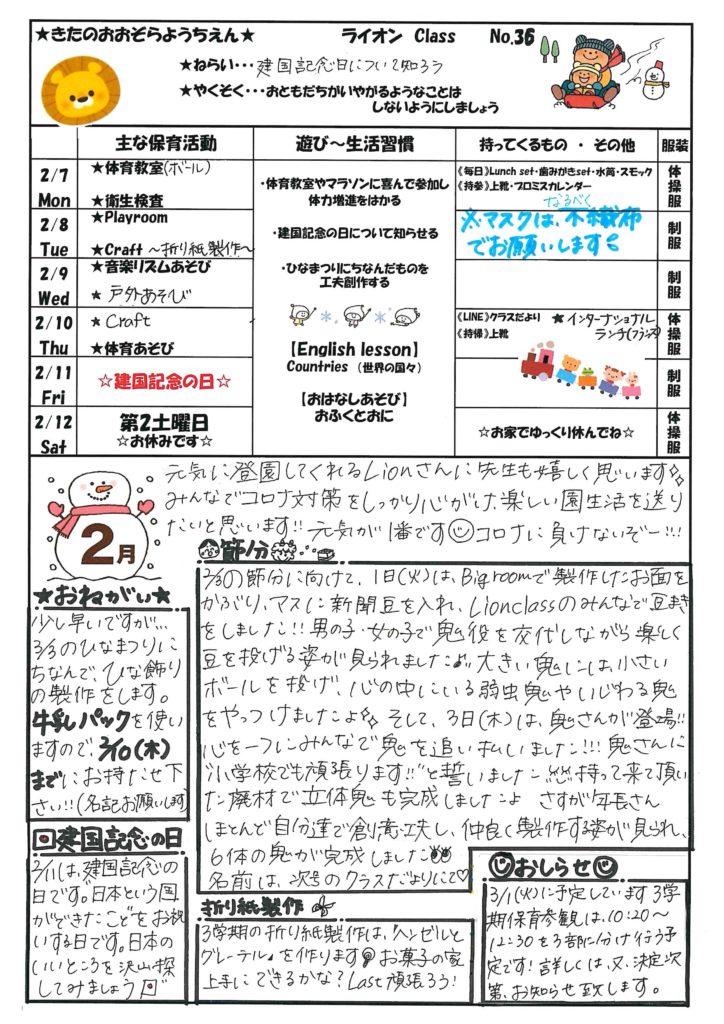 ★きたのおおぞらようちえん★ ライオン Class No.36
★ねらい・・・建国記念日について知ろう
★やくそく・・・おともだちがいやがるようなことは
しないようにしましょう
主な保育活動 遊び～生活習慣 持ってくるもの ・ その他 服装
2/7 Mon
★体育教室(ボール)
★衛生検査
《毎日》Lunch set・歯みがきset・水筒・スモック
《持参》上靴・プロミスカレンダー
体操服
2/8 Tue
★Playroom
★Craft ～折り紙製作～
なるべく
※マスクは、不織布
でお願いします
制服
2/9 Wed
★音楽リズムあそび
★戸外あそび
制服
2/10 Thu
★Craft
★体育あそび
《LINE》クラスだより ★インターナショナル
《持帰》上靴 ランチ(フランス)
体操服
2/11 Fri
☆建国記念の日☆
制服
2/12 Sat
第2土曜日
☆お休みです☆
☆お家でゆっくり休んでね☆
体操服
・体育教室やマラソンに喜んで参加し
体力増進をはかる
・建国記念の日について知らせる
・ひなまつりにちなんだものを
工夫創作する
【English lesson】
Countries （世界の国々）
【おはなしあそび】
おふくとおに
2月
元気に登園してくれるLionさんに先生も嬉しく思います
みんなでコロナ対策をしっかり心がけ、楽しい園生活を送り
たいと思います!! 元気が1番です コロナに負けないぞー!!!
★おねがい★
少し早いですが...
3/3のひなまつりに
ちなんで、ひな飾り
の製作をします。
牛乳パックを使い
ますので、2/10(木)
までにお持たせ下
さい!!(名記お願いします)
節分
2/3の節分に向けて、1日(火)は、Big roomで製作したお面を
かぶり、マスに新聞豆を入れ、Lionclassのみんなで豆まき
をしました!! 男の子・女の子で鬼役を交代しながら楽しく
豆を投げる姿が見られました♪ 大きい鬼には、小さい
ボールを投げ、心の中にいる弱虫鬼やいじわる鬼
をやっつけましたよ そして、3日(木)は、鬼さんが登場!!
心を一つにみんなで鬼を追い払いました!!! 鬼さんに
"小学校でも頑張ります!!"と誓いました 持って来て頂い
た廃材で立体鬼も完成しましたよ さすが年長さん
ほとんど自分達で創意工夫し、仲良く製作する姿が見られ、
6体の鬼が完成しました
名前は、次号のクラスだよりにて♡
建国記念の日
2/11は、建国記念の
日です。日本という国
ができたことをお祝
いする日です。日本の
いいところを沢山探
してみましょう
折り紙製作
3学期の折り紙製作は、『ヘンゼルと
グレーテル』を作ります お菓子の家
上手にできるかな？Last頑張ろう！
おしらせ
3/1(火)に予定しています3学
期保育参観は、10:20～
12:30を3部に分け行う予
定です！詳しくは、又、決定次
第、お知らせ致します。